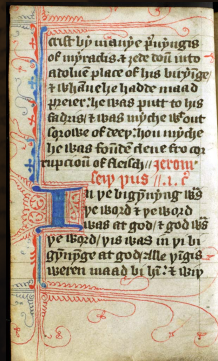 crist by manye prẏuyngis
of myraclis. ⁊ ȝede doū into
a doluē place of his biryĩge
⁊ whāne he hadde maad
preier. he was putt to his
fadris. ⁊ was myche wͭ out
sorowe of deeþ. hou myche
he was foūdē alene fro cor
rupcioū of fleisch //
In ye bigynyng was
ye word ⁊ ye word
was at god / ⁊ god was
ye word / yis was in yi bi
gynynge at god / alle yīgis
weren maad bi hī. ⁊ wiþ